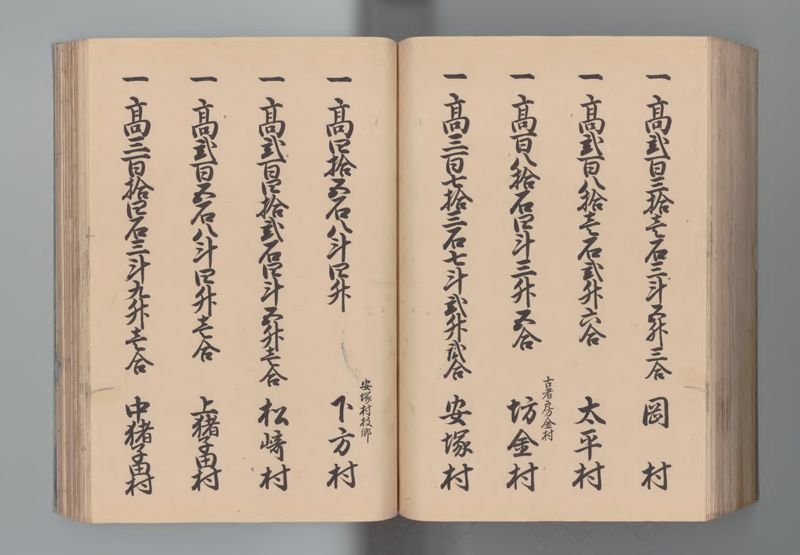 一 高弐百三拾壱石三斗五升三合 岡村
一 高弐百八拾壱石弐升六合 太平村
古者房金村
一 高百八拾石四斗三升五合 坊金村
一 高三百七拾三石七斗弐升弐合 安塚村
安塚村枝郷
一 高四拾五石八斗四升 下方村
一 高弐百四拾弐石四斗五升壱合 松崎村
一 高弐百五石八斗四升壱合 上猪子田村
一 高三百拾四石三斗九升壱合 中猪子田村